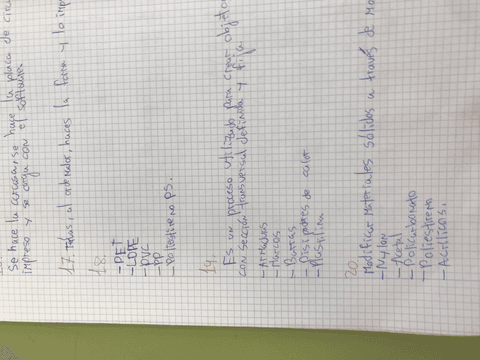 Se hace la carcasa, se hace la placa de circu
impreso y se carga con el software.
17. al ordenador, haces la forma y lo impr
18.
- PET
- LDPE
- PVC
- PP
- Poliestireno PS.
19.
Es un proceso utilizado para crear objetos
con sección transversal definida y fija.
- Armarios
- Marcos
- Barras
- Disipadores de calor
20.
Modificar materiales sólidos a través de mo
- Nylon
- Acetal
- Policarbonato
- Poliestireno
- Acrílicos.